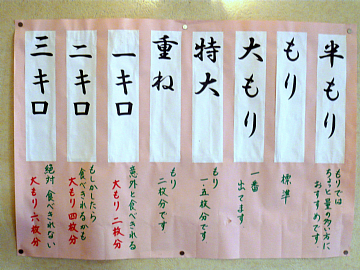 半もり
もりでは
ちょっと量の多い方に
おすすめです。
もり
標準
大もり
一番
出てます
特大
もり
一.五枚分です
重ね
もり
二枚分です
一キロ
意外と食べきれる
大もり二枚分
二キロ
もしかしたら
食べきれるかも
大もり四枚分
三キロ
絶対食べきれない
大もり六枚分